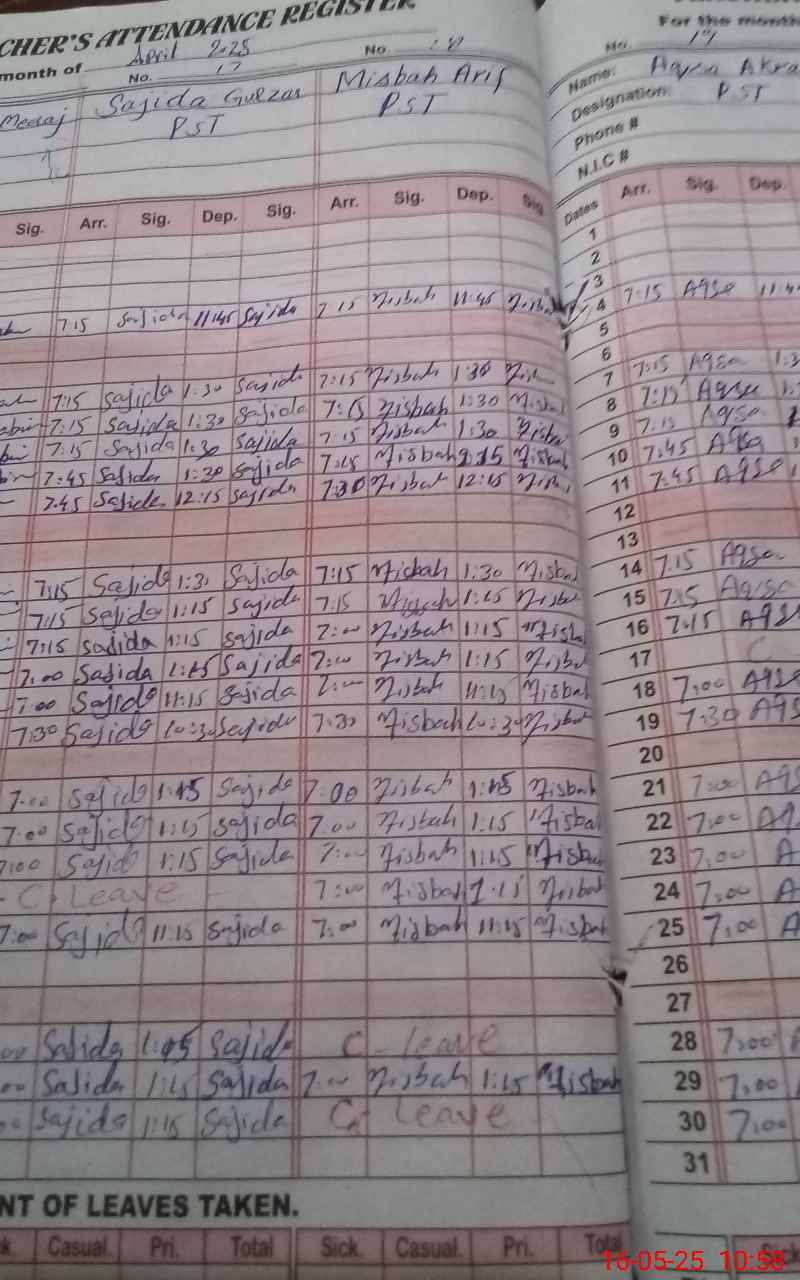 CHER'S ATTENDANCE REGISTER
month of April 2025 No. 18
No. 17
Meeraj Sajida Gulzar Misbah Arif
PST PST
For the month
No. 19
Name: Aqsa Akra
Designation: PST
Phone #
N.I.C #
Sig. Arr. Sig. Dep. Sig. Arr. Sig. Dep. Sig
Dates Arr. Sig. Dep.
1
2
3
7:15 Sajida 11:45 Sajida 7:15 Misbah 11:45 Misbah 4 7:15 Aqsa 11:4
5
6
7:15 Sajida 1:30 Sajida 7:15 Misbah 1:30 7 7:15 Aqsa 1:3
7:15 Sajida 1:30 Sajida 7:15 Misbah 1:30 Misbah 8 7:15 Aqsa 1:
7:15 Sajida 1:30 Sajida 7:15 Misbah 1:30 Misbah 9 7:15 Aqsa
7:45 Sajida 1:30 Sajida Misbah Misbah 10 7:45 Aqsa
7:45 Sajida 12:15 Sajida 7:30 Misbah 12:15 11 7:45 Aqsa
12
13
7:15 Sajida 1:30 Sajida 7:15 Misbah 1:30 Misbah 14 7:15 Aqsa
7:15 Sajida 1:15 Sajida 7:15 Misbah 1:15 Misbah 15 7:15 Aqsa
7:15 Sajida 1:15 Sajida 7:00 Misbah 1:15 Misba 16 7:15 Aqsa
7:00 Sajida 1:15 Sajida 7:00 Misbah 1:15 Misba 17 C
7:00 Sajida 11:15 Sajida 7:00 Misbah 11:15 Misbah 18 7:00 Aqsa
7:30 Sajida 10:30 Sajida 7:30 Misbah 10:30 Misbah 19 7:30 Aqs
20
7:00 Sajida 1:15 Sajida 7:00 Misbah 1:15 Misbah 21 7:00 Aqs
7:00 Sajida 1:15 Sajida 7:00 Misbah 1:15 Misbah 22 7:00 Aq
7:00 Sajida 1:15 Sajida 7:00 Misbah 1:15 Misbah 23 7:00 A
C. Leave 7:00 Misbah 1:15 Misbah 24 7:00 A
7:00 Sajida 11:15 Sajida 7:00 Misbah 11:15 Misbah 25 7:00 A
26
27
00 Sajida 1:15 Sajida C - leave 28 7:00 A
00 Sajida 1:15 Sajida 7:00 Misbah 1:15 Misbah 29 7:00
00 Sajida 1:15 Sajida C. Leave 30 7:00
31
NT OF LEAVES TAKEN.
k. Casual. Pri. Total Sick. Casual. Pri. Total Sick
16-05-25 10:58